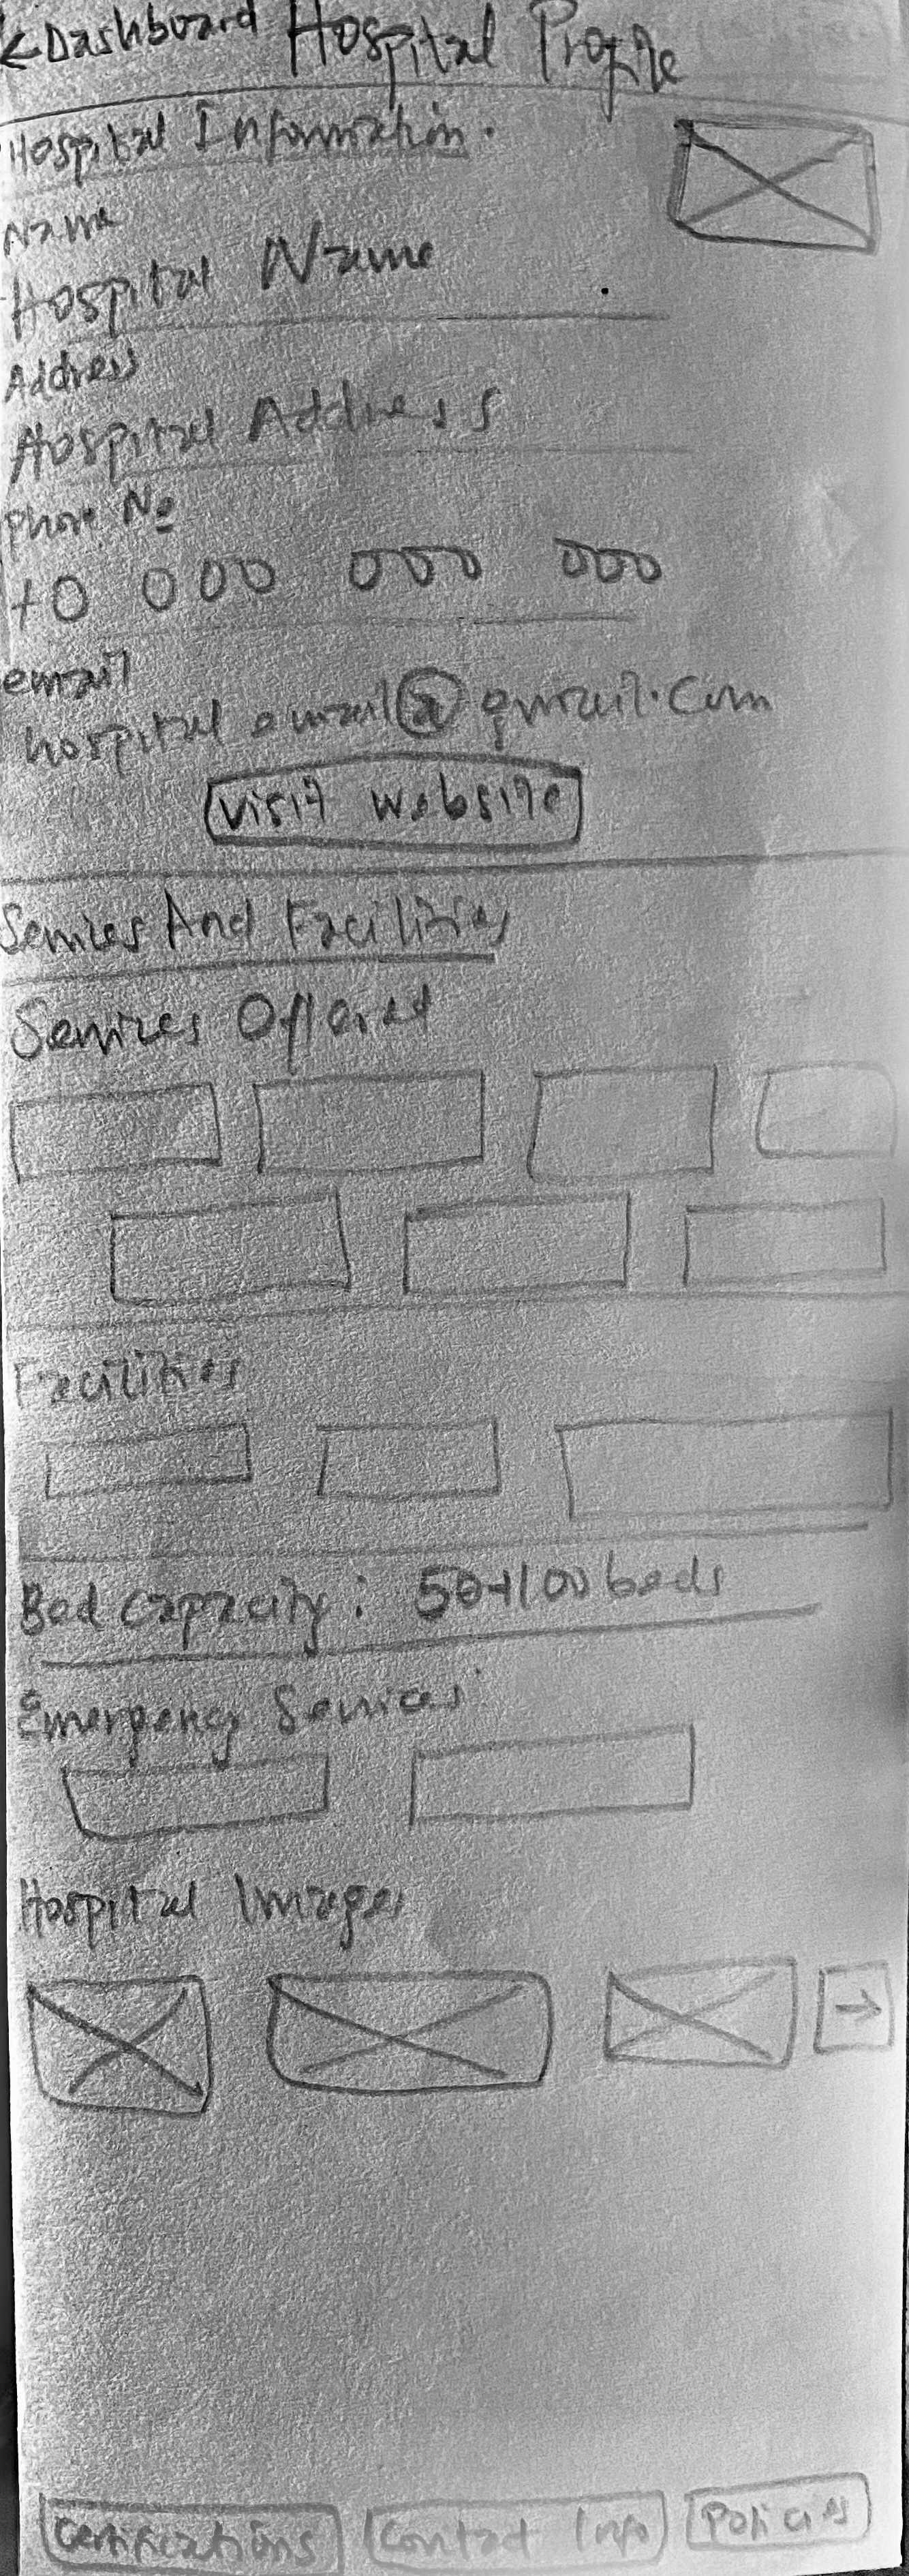 ←Dashboard Hospital Profile
Hospital Information.
Name
Hospital Name
Address
Hospital Address
Phone No
+0 000 000 000
email
hospital email@gmail.com
Visit Website
Services And Facilities
Services Offered
Facilities
Bed Capacity: 50-100 beds
Emergency Services
Hospital Images
→
Certifications Contact Info Policies